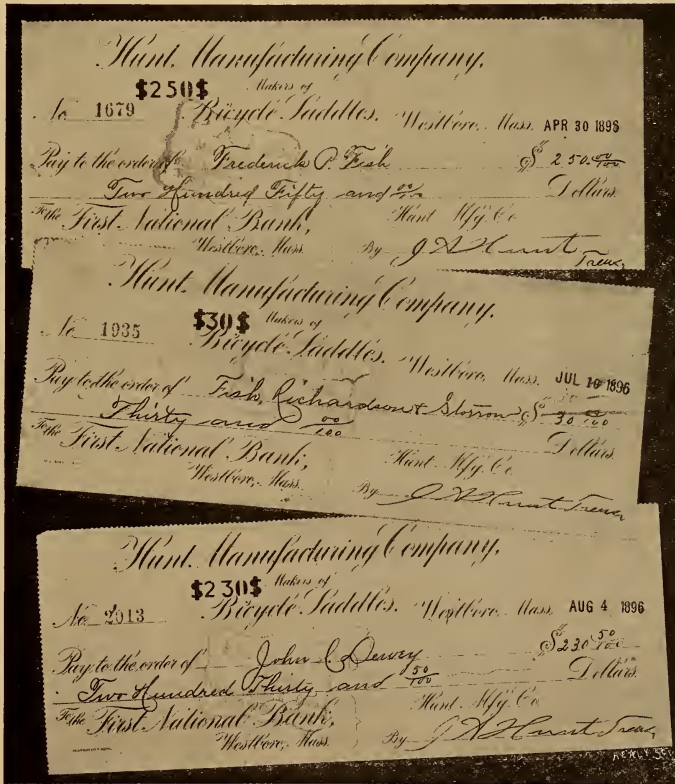 Hunt Manufacturing Company,
$250$ Makers of
No 1679 Bicycle Saddles. Westboro, Mass. APR 30 1896
Pay to the order of Frederick P. Fish $ 250.00/100
Two Hundred Fifty and 00/100 Dollars
To the First National Bank, Hunt Mfg. Co
Westboro, Mass. By J A Hunt Treas
Hunt Manufacturing Company,
$30$ Makers of
No 1935 Bicycle Saddles. Westboro, Mass. JUL 10 1896
Pay to the order of Fish, Richardson & Storrow $ 30 00/100
Thirty and 00/100 Dollars
To the First National Bank, Hunt Mfg. Co
Westboro, Mass. By J A Hunt Treas
Hunt Manufacturing Company,
$230$ Makers of
No. 2013 Bicycle Saddles. Westboro, Mass. AUG 4 1896
Pay to the order of John C. Dewey $ 230 50/100
Two Hundred Thirty and 50/100 Dollars
To the First National Bank, Hunt Mfg. Co
Westboro, Mass. By J A Hunt Treas